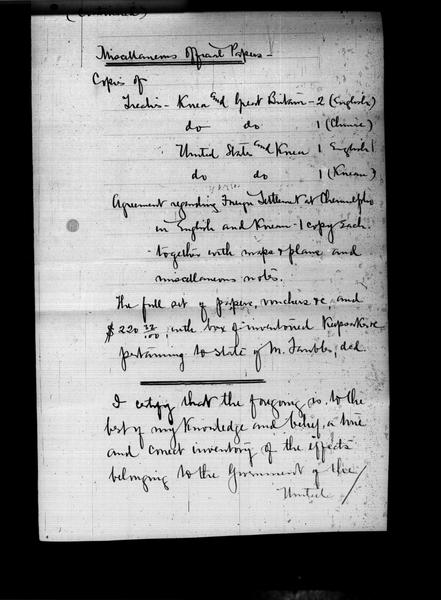 (Continued)
Miscellaneous Official Papers -
Copies of
Treaties - Korea and Great Britain - 2 (English)
do do 1 (Chinese)
United States and Korea 1 English
do do 1 (Korean)
Agreement regarding Foreign Settlement at Chemulpho
in English and Korean - 1 copy each
together with maps & plans and
miscellaneous notes.
The full set of papers, vouchers &c, and
$220 32/100, with box of inventoried
pertaining to State of M. ded.
I certify that the foregoing is, to the
best of my Knowledge and belief, a true
and correct inventory of the effects
belonging to the Government of the
United